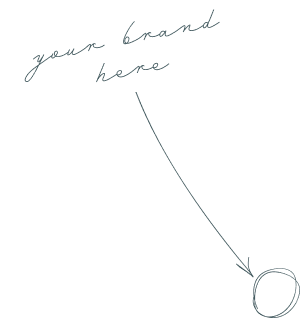 your brand
here